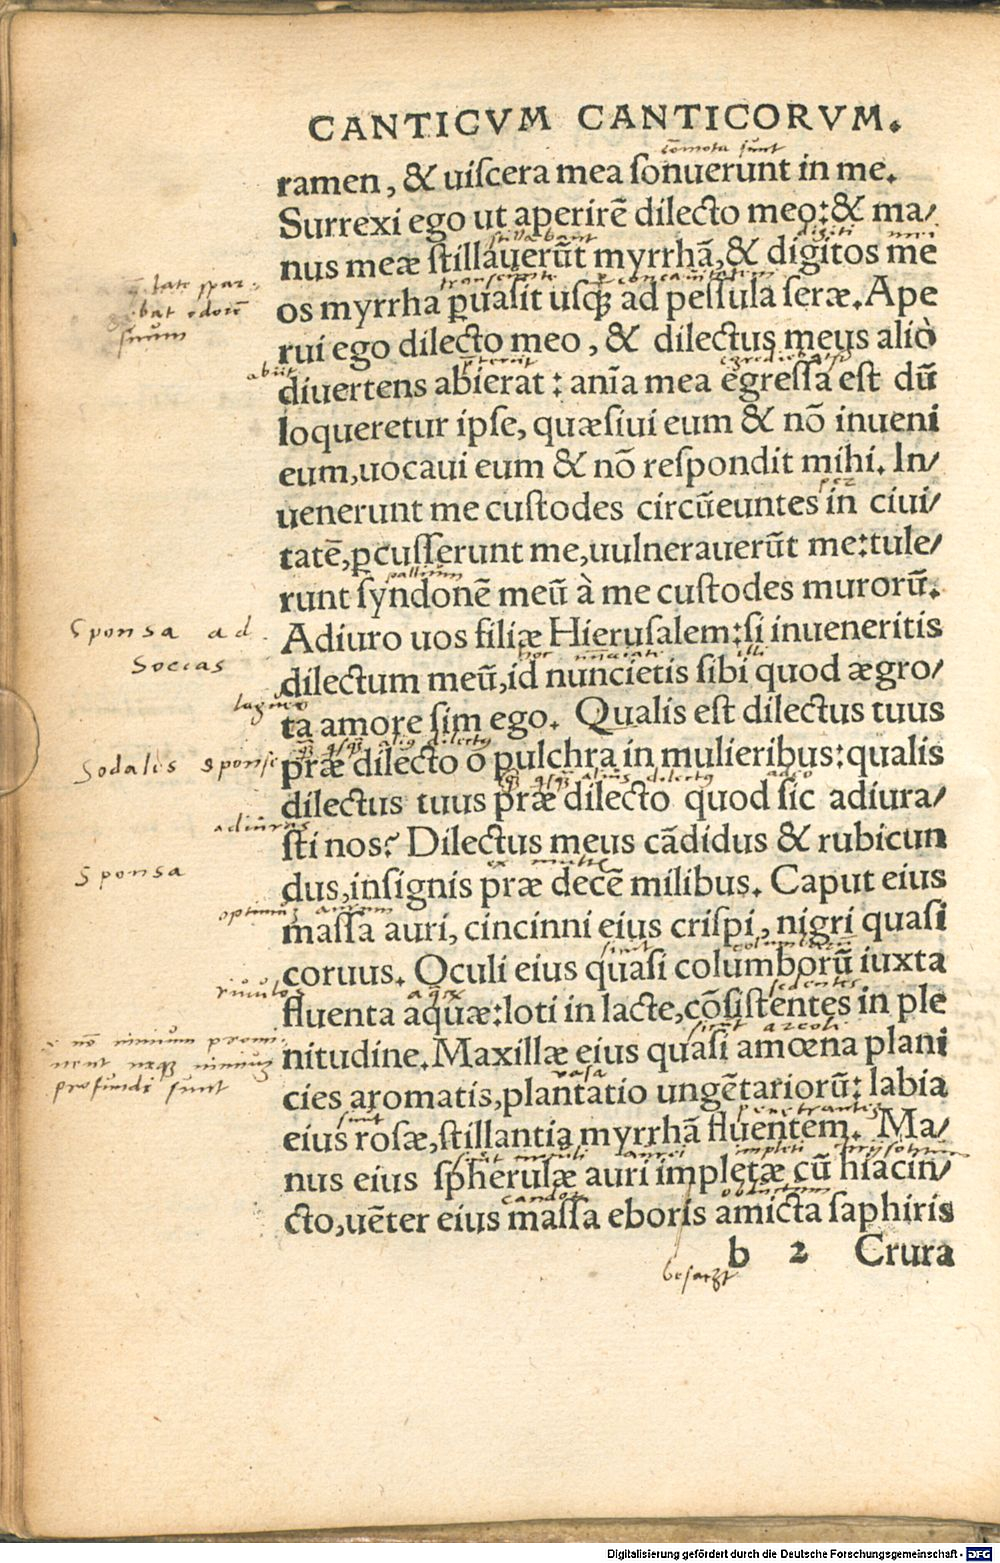 CANTICVM CANTICORVM.
com̄ota sunt
ramen, & uiſcera mea ſonuerunt in me.
Surrexi ego ut aperirē dilecto meo:& ma/
stillabant digiti mei
nus meæ ſtillauerūt myrrhā,& digitos me
bat odorē
suum
os myrrha ꝑuaſit uſqȝ ad peſſula ſeræ. Ape
rui ego dilecto meo, & dilectus meus aliò
abiit
diuertens abierat: anīa mea egreſſa eſt dū
loqueretur ipſe, quæſiui eum & nō inueni
eum,uocaui eum & nō reſpondit mihi. In/
per
uenerunt me cuſtodes circūeuntes in ciui/
tatē,ꝑcuſſerunt me,uulnerauerūt me:tule/
pallium
runt ſyndonē meū à me cuſtodes murorū.
Sponsa ad
Socias
Adiuro uos filiæ Hieruſalem:ſi inueneritis
hoc illi
dilectum meū,id nuncietis ſibi quod ægro/
ta amore ſim ego. Qualis eſt dilectus tuus
Sodales sponse
præ dilecto o pulchra in mulieribus:qualis
adeo
dilectus tuus præ dilecto quod ſic adiura/
ſti nos? Dilectus meus cādidus & rubicun
Sponsa
ex
dus,inſignis præ decē milibus. Caput eius
aurum
maſſa auri, cincinni eius criſpi, nigri quaſi
sicut
coruus. Oculi eius quaſi columborū iuxta
riuulos sedentes
fluenta aquæ:loti in lacte,cōſiſtentes in ple
nō nimium promi-
nent neqȝ nimium
profundi sunt
sicut areoli
nitudine. Maxillæ eius quaſi amœna plani
vasa
cies aromatis,plantatio ungētariorū: labia
sunt
eius roſæ,ſtillantia myrrhā fluentem. Ma/
impleti
nus eius ſpherulæ auri impletæ cū hiacin/
cto,uēter eius maſſa eboris amicta ſaphiris
b 2 Crura
besaczt
Digitalisierung gefördert durch die Deutsche Forschungsgemeinschaft - DFG